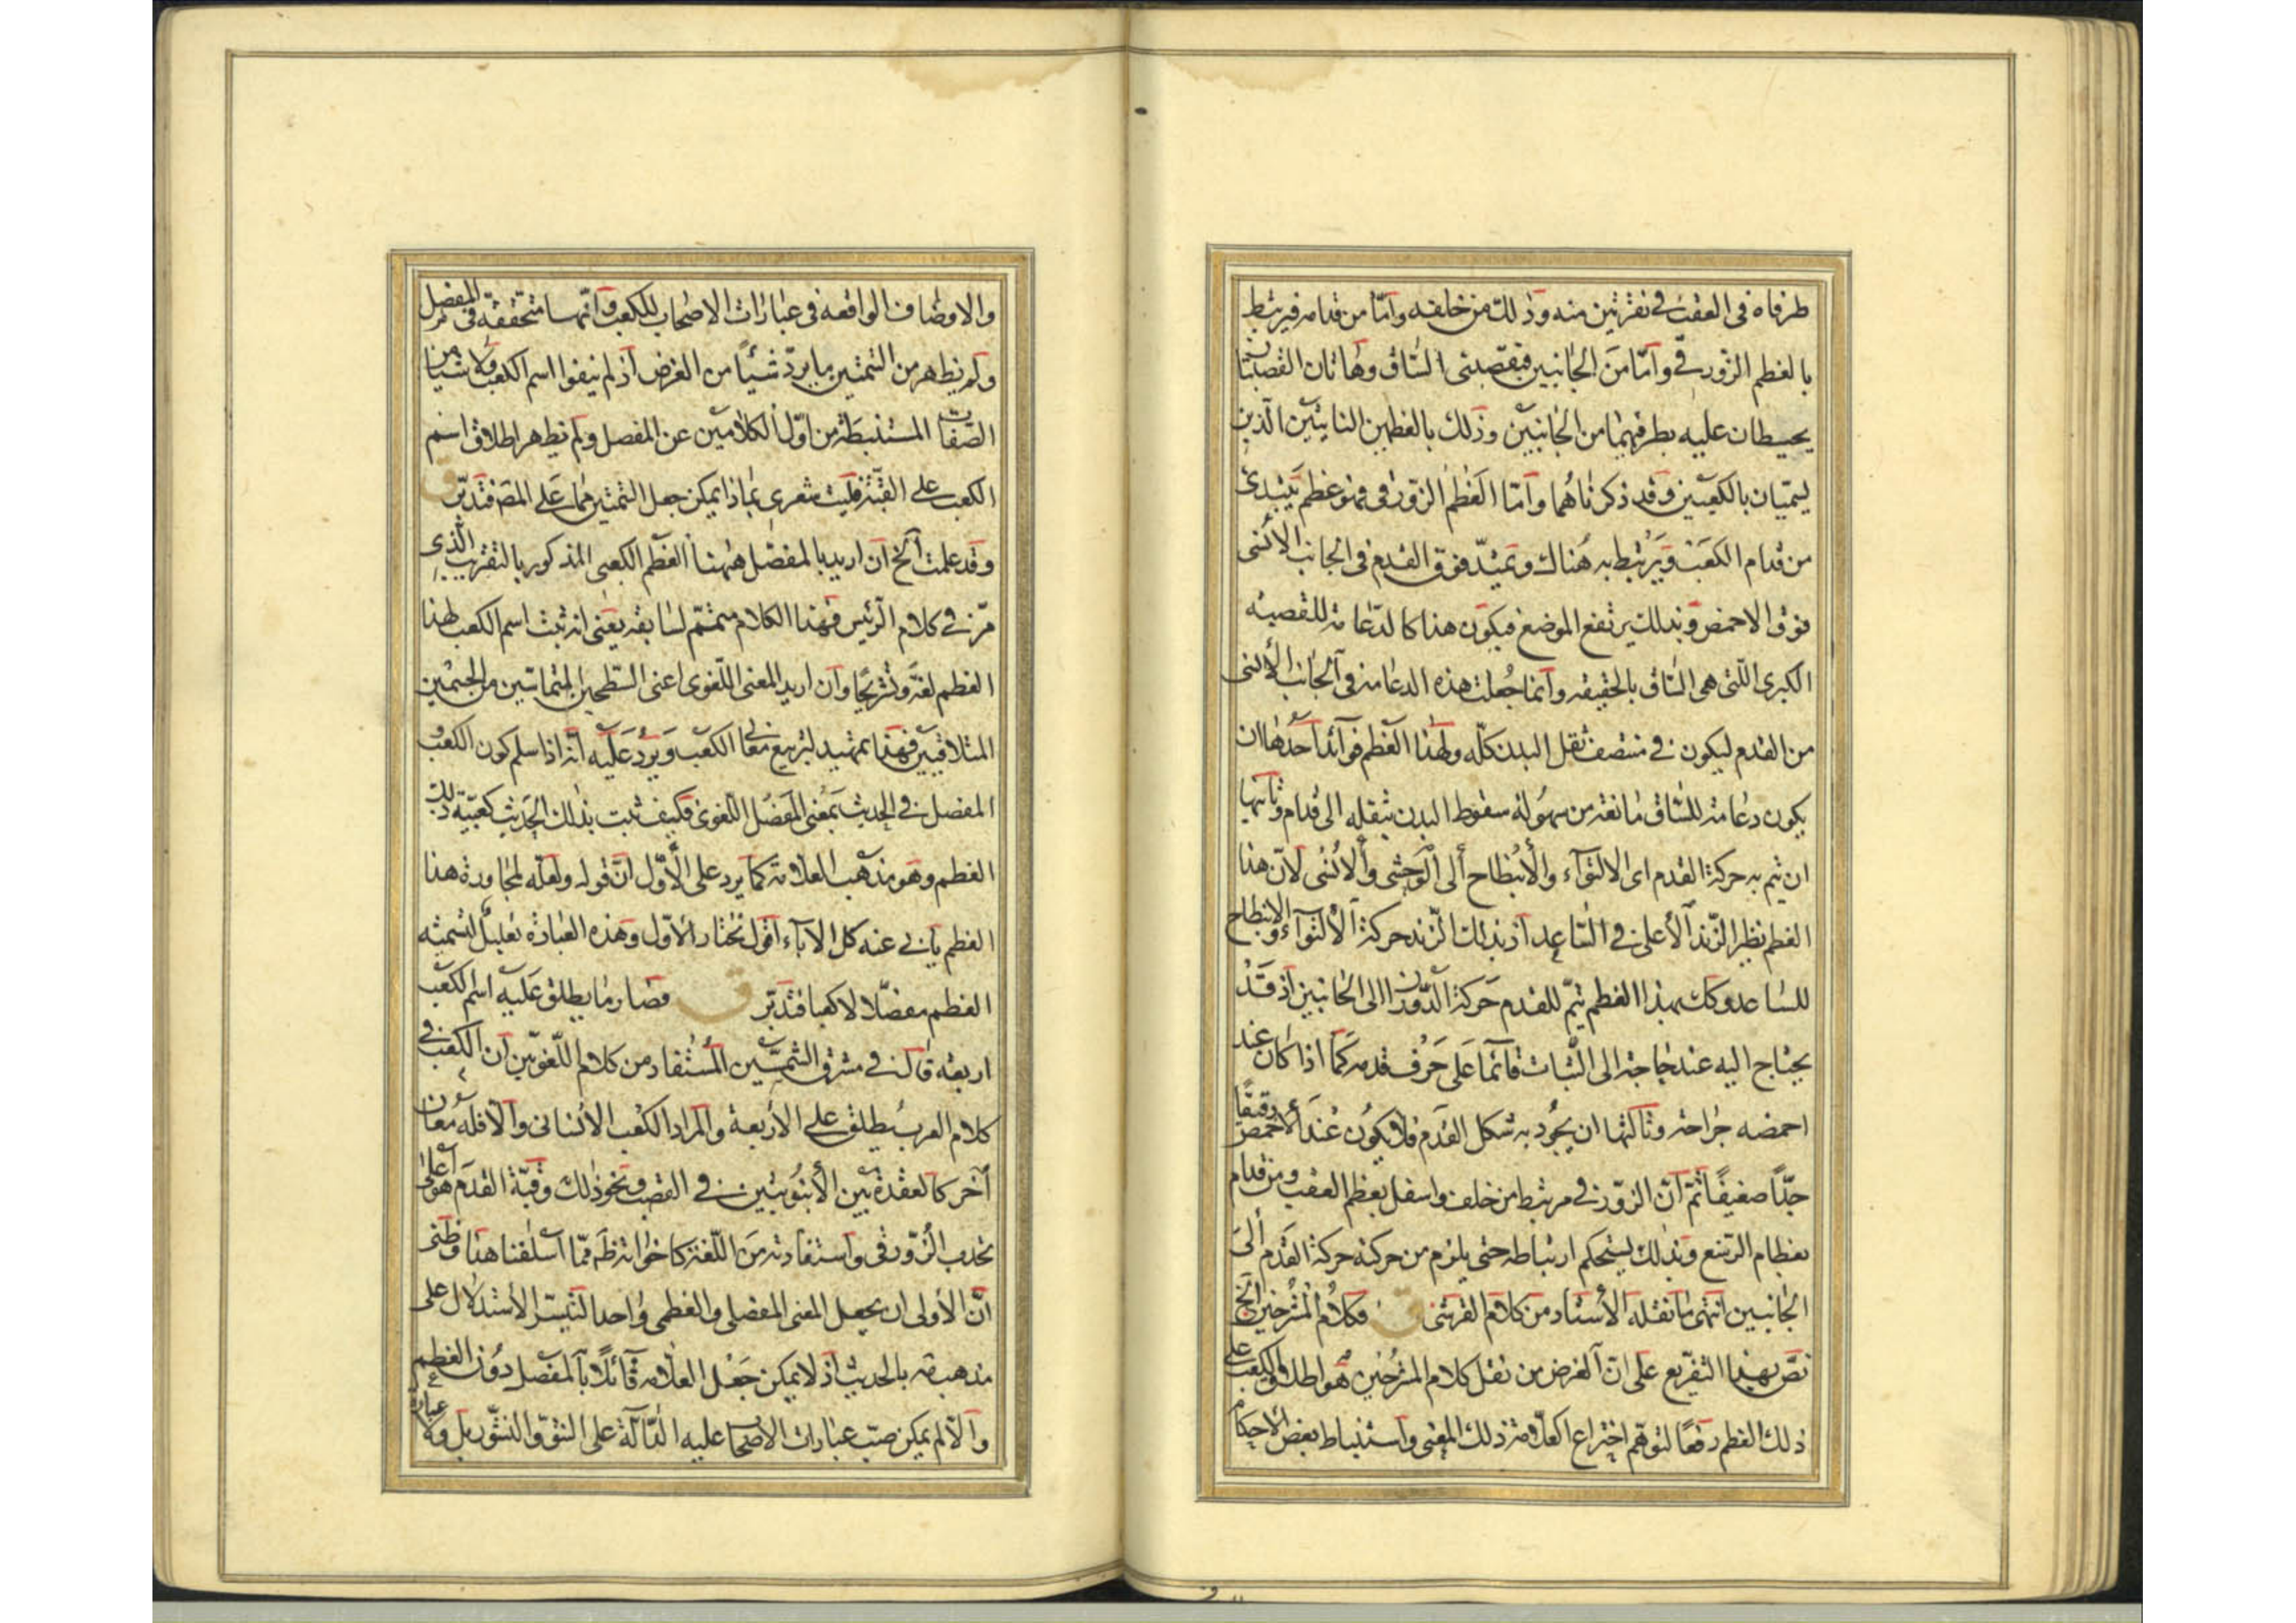 طرفاه فى العقب فى نقرتين منه وذلك من خلفه وامّا من قدامه فيرتبط
بالعظم الزورقى وامّا من الجانبين فبقصبتى الساق وهاتان القصبتان
يحيطان عليه بطرفيهما من الجانبين وذلك بالعظمين الناتيين الذين
يسميان بالكعبين وقد ذكرناهما وامّا العظم الزورقى فهو عظم يبتدى
من قدام الكعب ويرتبط به هناك ويمتدّ فوق القدم فى الجانب الانسى
فوق الاخمص وبذلك يرتفع الموضع فيكون هذا كالدعامة للقصبة
الكبرى اللتى هى الساق بالحقيقه وانما جُعلت هذه الدعامة فى الجانب الانسى
من القدم ليكون فى منتصف ثقل البدن كلّه ولهذا العظم فوائد احدها ان
يكون دعامة للساق مانعة من سهولة سقوط البدن بثقله الى قدام وثانيها
ان تتم به حركة القدم اى الالتوآء والانبطاح الى الوحشى والانسى لانّ هذا
العظم نظير الزند الاعلى فى الساعد اذ بذلك الزند حركة الالتوآء والانبطاح
للساعد وكك بهذا العظم تتمّ للقدم حركة الدوران الى الجانبين اذ قد
يحتاج اليه عند حاجة الى الثبات قائما على حرف قدمه كما اذا كان عند
اخمصه جراحة وثالثها ان يجود به شكل القدم فلا يكون عند الاخمص دقيقًا
جدًّا ضعيفًا ثمّ انّ الزورقى مرتبط من خلف واسفل بعظم العقب ومن قدام
بعظام الرسغ وبذلك يستحكم ارتباطه حتى يلزم من حركته حركة القدم الى
الجانبين انتهى ما نقله الاستاد من كلام القرشى ق فكلام المشرحين الخ
نصّ بهذا التفريع على انّ الغرض من نقل كلام المشرحين هو اطلاق الكعب على
ذلك العظم دفعًا لتوهّم اختراع العلّامة ذلك المعنى واستنباط بعض الاحكام
والاوصاف الواقعه فى عبارات الاصحاب للكعب وانّها متحققة فى المفصل
ولم يظهر من التمتين ما يردّ شيئًا من الغرض اذ لم ينفوا اسم الكعب ولا شيئا من
الصفات المستنبطة من اوّل الكلامين عن المفصل ولم يظهر اطلاق اسم
الكعب على القبّة فليت شعرى بماذا يمكن جعل التمتين مما على المصَ فتدبّر ق
وقد علمت الخ ان اريد بالمفصل ههنا العظم الكعبى المذكور بالتقريب الذى
مرّ فى كلام الرئيس فهذا الكلام متمّم لسابقه يعنى انه ثبت اسم الكعب لهذا
العظم لغة وتشريحًا وان اريد المعنى اللّغوى اعنى السّطحين المتماسّين من الجسمين
المتلاقيين فهذا تمهيد لتربيع معانى الكعب ويرد عليه انّه اذا سلم كون الكعب و
المفصل فى الحديث بمعنى المفصل اللّغوى فكيف ثبت بذلك الحديث كعبيّة ذلك
العظم وهو مذهب العلامة كما يرد على الاوّل انّ قوله ولعلّه لمجاورة هذا
العظم يأبى عنه كل الاباء اقول نختار الاوّل وهذه العبارة تعليل لتسميته
العظم مفصلا لا كعبا فتدبّر ق فصار ما يطلق عليه اسم الكعب
اربعة قال فى مشرق الشمسين المستفاد من كلام اللّغويّين انّ الكعب فى
كلام العرب يطلق على الاربعة والمراد الكعب الانسانى والّا فله معان
آخر كالعقدة بين الانبوبتين فى القصب ونحو ذلك وقبّة القدم هو اعلى
تحدب الزورقى واستفادته من اللّغة كاخواته ظَهر ممّا اسلفنا هذا وظنى
انّ الاولى ان يجعل المعنى المفصلى والعظمى واحدا لتيسّر الاستدلال على
مذهب مه بالحديث اذ لا يمكن جعل العلامه قائلًا بالمفصل دون العظم
والّا لم يمكن صبّ عبارات الاصحاب عليه الدّالّة على النتوّ والنشور بل ولا عبارة